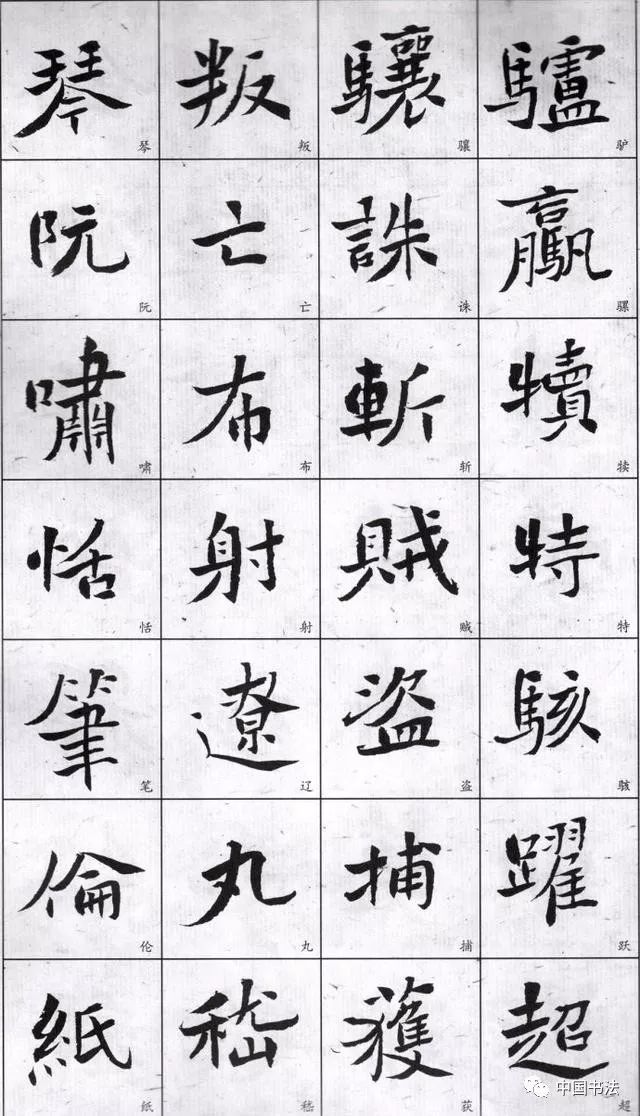 驢驘犢特駭躍超
驴骡犊特骇跃超
驤誅斬賊盜捕獲
骧诛斩贼盗捕获
叛亡布射遼丸嵇
叛亡布射辽丸嵇
琴阮嘯恬筆倫紙
琴阮啸恬笔伦纸
中国书法